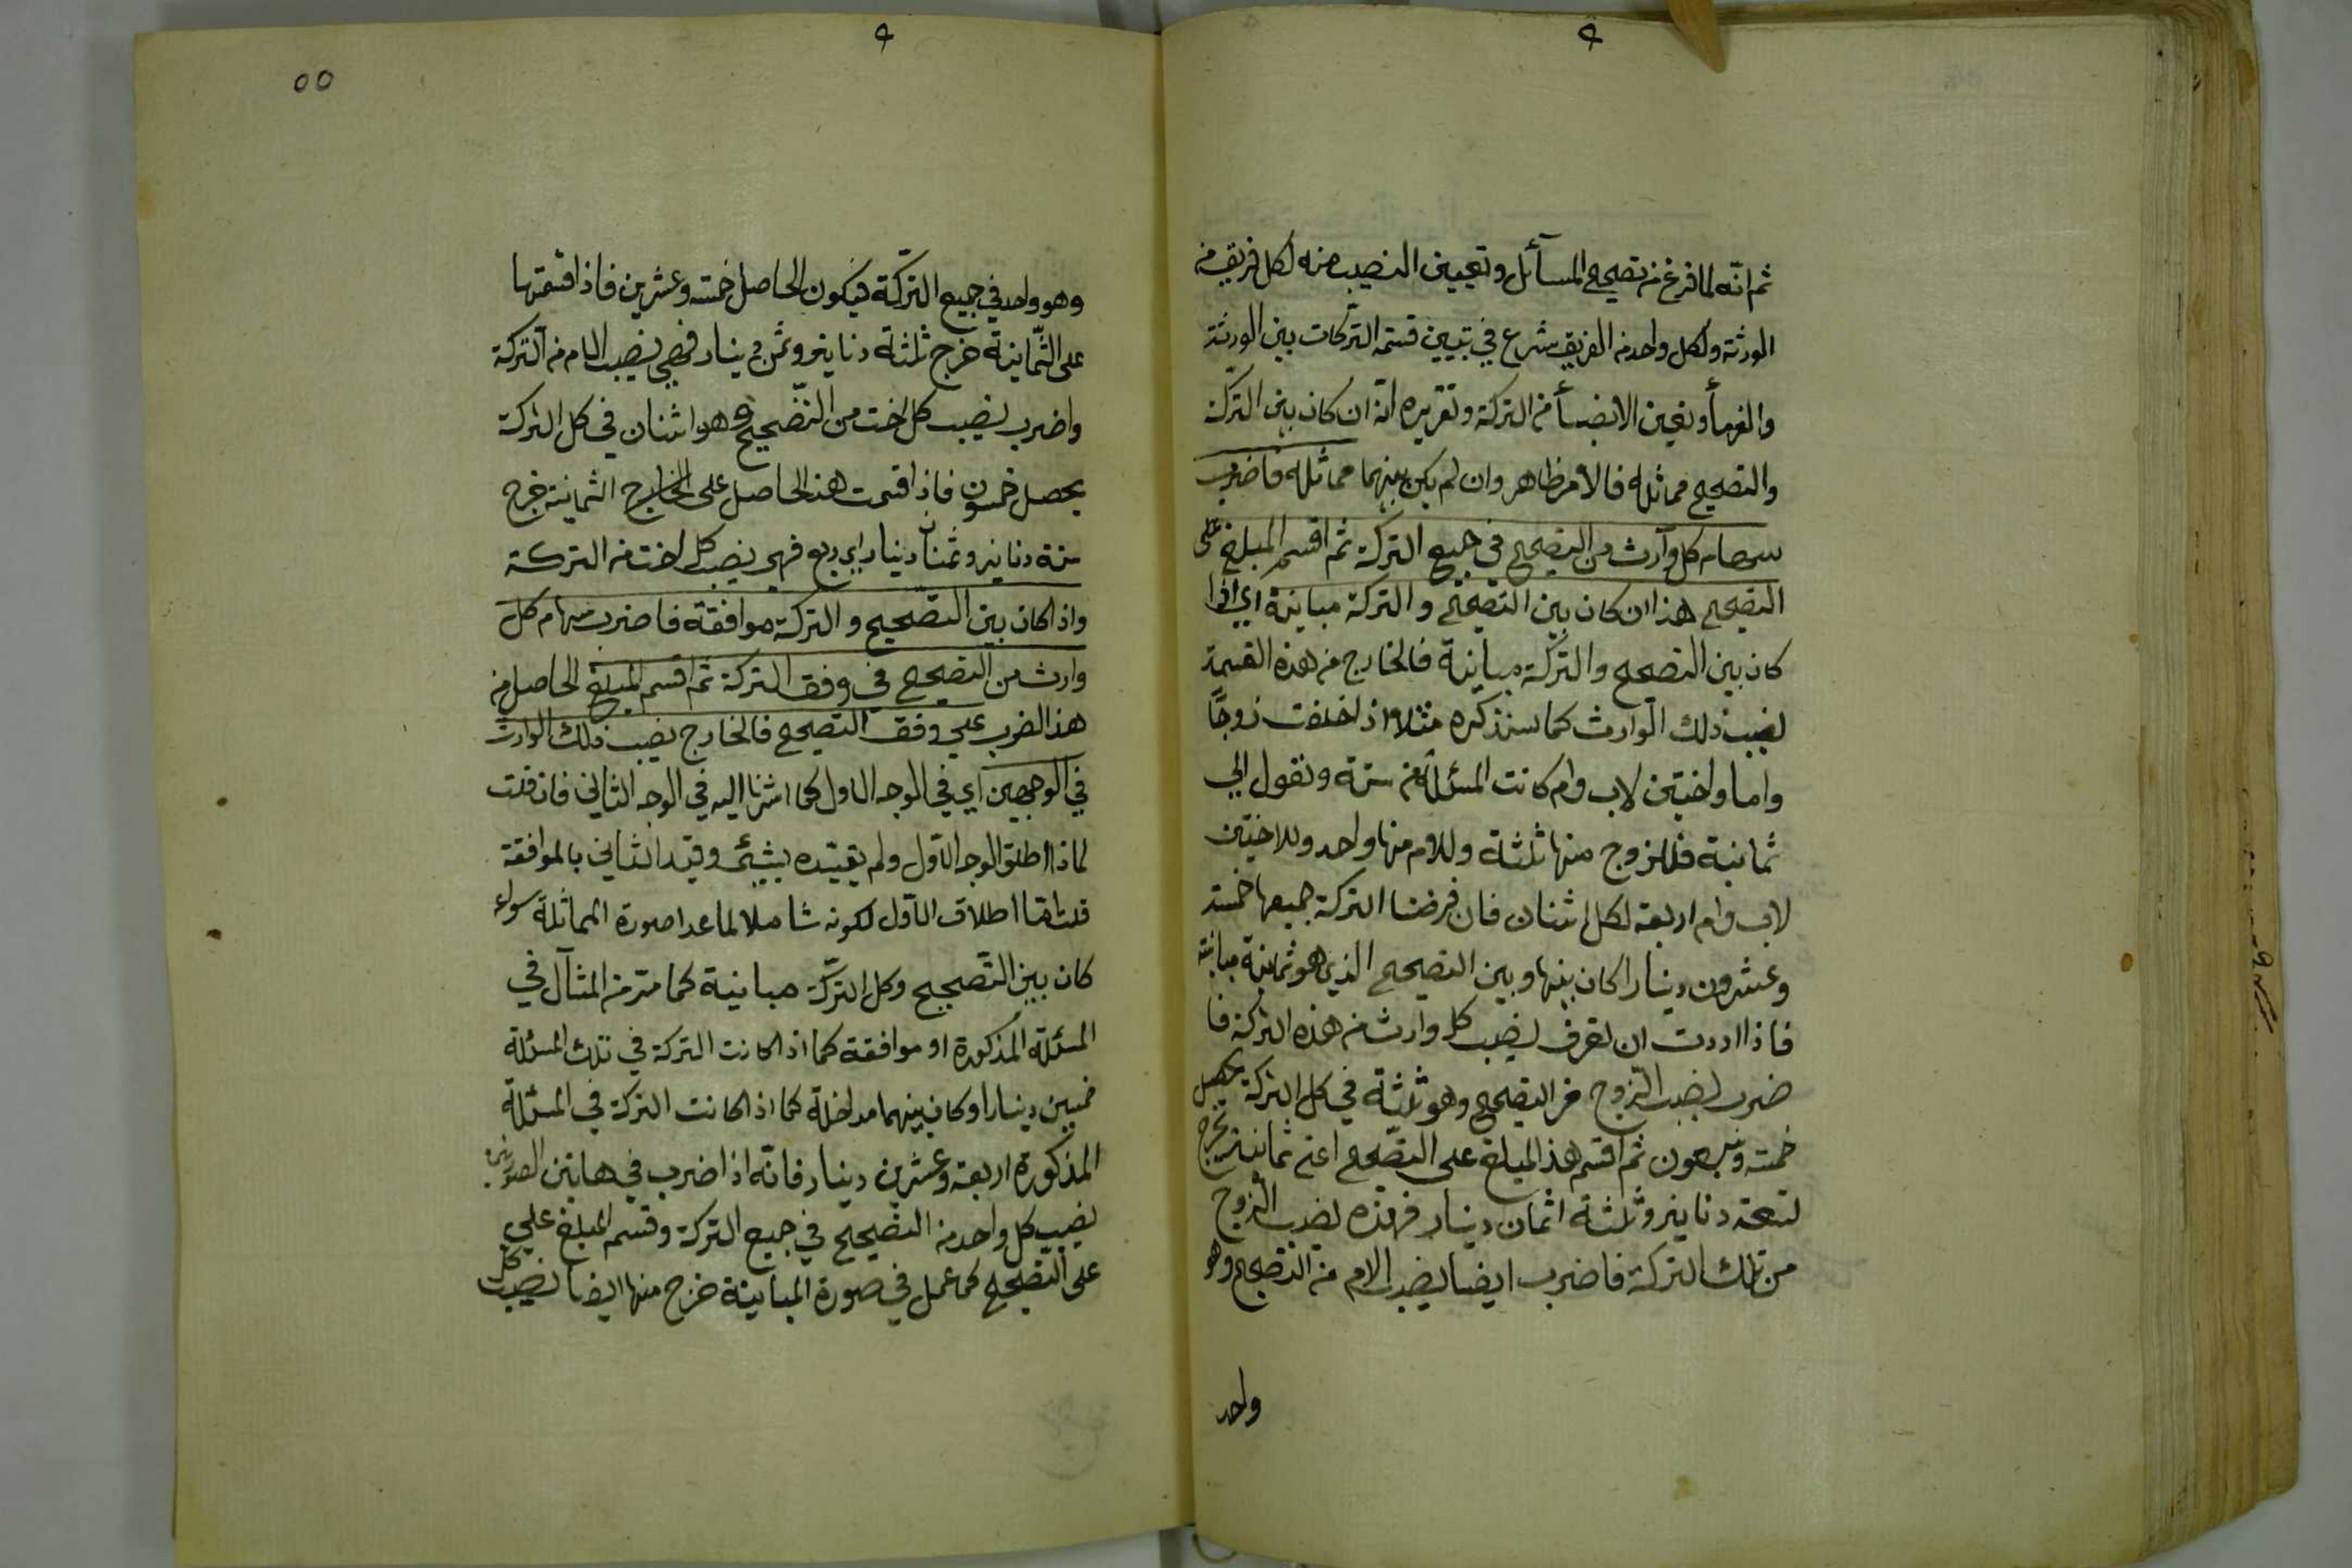 ثم انّه لما فرغ من تصحيح المسآئل وتعيين النصيب منه لكل فريق من
الورثة ولكل واحد من الفريق شرع في تبيين قسمة التركات بين الورثة
والغرمأ وتعين الانصبأ من التركة وتقريره انّه ان كان بين التركة
والتصحيح مماثلة فالامر ظاهر وان لم يكن بينهما مماثلة فاضرب
سهام كل وآرث من التصحيح في جميع التركة ثم اقسم المبلغ على
التصحيح هذا ان كان بين التصحيح والتركة مباينة اي اذا
كان بين التصحيح والتركة مباينة فالخارج من هذه القسمة
نصيب ذلك الوارث كما سنذكره مثلا اذا خلفت زوجًا
واما واختين لاب وام كانت المسئلة من ستة وتعول الي
ثمانية فللزوج منها ثلثة وللام منها واحد وللاختين
لاب وام اربعة لكل اثنان فان فرضنا التركة جميعها خمسة
وعشرون دينارا كان بينها وبين التصحيح الذي هو ثمانية مباينة
فاذا اردت ان تعرف نصيب كل وارث من هذه التركة فا
ضرب نصيب الزوج من التصحيح وهو ثلثة في كل التركة يحصل
خمسة وسبعون ثم اقسم هذا المبلغ على التصحيح اعني ثمانية يخرج
تسعة دنانير وثلثة اثمان دينار فهذه نصيب الزوج
من تلك التركة فاضرب ايضا نصيب الام من التصحيح وهو
واحد
٥٥
وهو واحد في جميع التركة فيكون الحاصل خمسة وعشرين فاذا قسمتها
على الثمانية خرج ثلثة دنانير وثمن دينار فهي نصيب الام من التركة
واضرب نصيب كل اخت من التصحيح وهو اثنان في كل التركة
يحصل خمسون فاذا قسمت هذا الحاصل على الخارج الثمانية خرج
ستة دنانير وثمنان دينار اي ربع فهي نصيب كل اخت من التركة
واذا كان بين التصحيح والتركة موافقة فاضرب سهام كل
وارث من التصحيح في وفق التركة ثم اقسم المبلغ الحاصل من
هذا الضرب علي وفق التصحيح فالخارج نصيب ذلك الوارث
في الوجهين اي في الوجه الاول كما اشرنا اليه في الوجه الثاني فان قلت
لماذا اطلق الوجه الاول ولم يقيّده بشيئ وقيد الثاني بالموافقة
قلت انما اطلاق الاول لكونه شاملا لما عدا صورة المماثلة سواء
كان بين التصحيح وكل التركة مباينة كما مرّ من المثال في
المسئلة المذكورة او موافقة كما اذا كانت التركة في تلك المسئلة
خمسين دينارا وكان بينهما مداخلة كما اذا كانت التركة في المسئلة
المذكورة اربعة وعشرين دينار فانّه اذا ضرب في هاتين الصورتين
نصيب كل واحد من التصحيح في جميع التركة وقسم المبلغ علي
على التصحيح كما عمل في صورة المباينة خرج منها ايضا نصيب كل